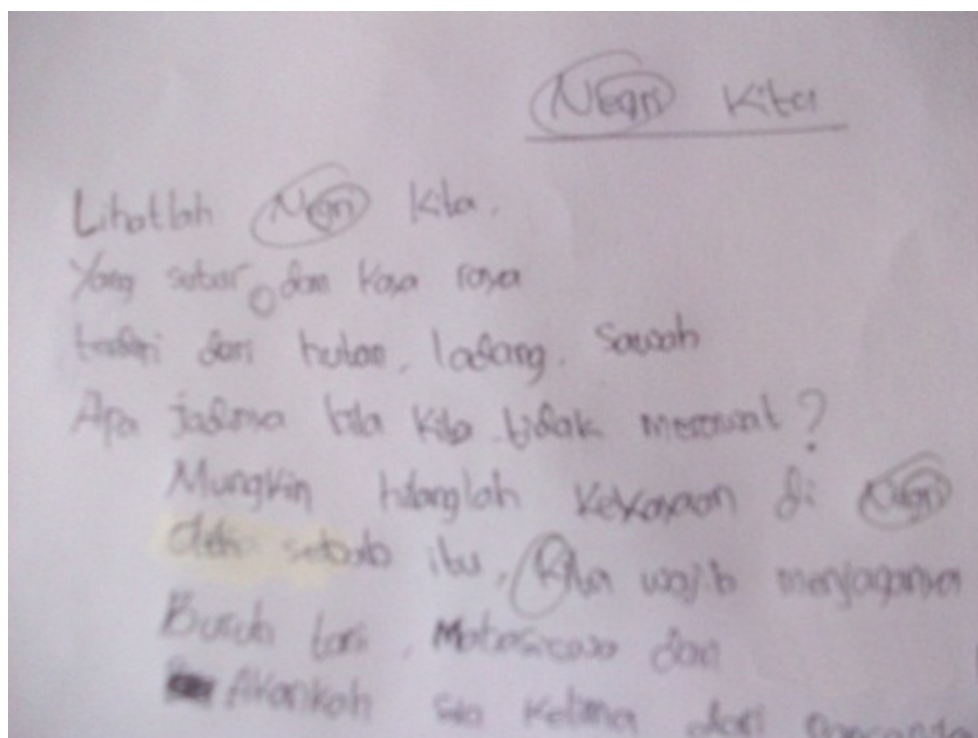 Negri Kita
Lihatlah Negri Kita.
Yang subur, dan kaya raya
terdiri dari hutan, ladang, sawah
Apa jadinya bila kita tidak merawat?
Mungkin hilanglah kekayaan di Negri
Oleh sebab itu, Kita wajib menjaganya
Buruh tani, Mahasiswa dan
Akankah sila kelima dari